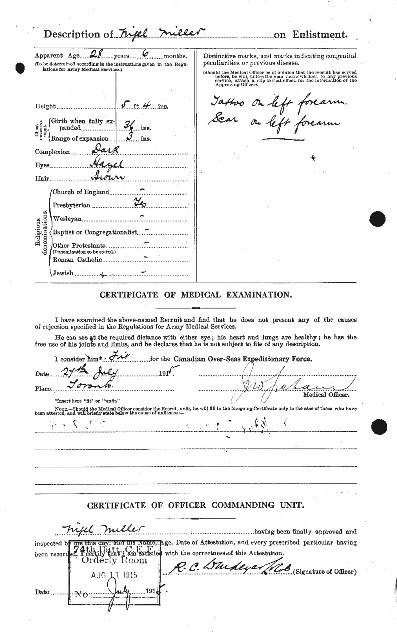 Description of Nigel Miller on Enlistment.
Apparent Age 28 years 6 months.
(To be determined according to the instructions given in the Regulations for Army Medical Services.)
Height 5 ft. 4 ins.
Chest measurement
Girth when fully expanded 36 ins.
Range of expansion 3 ins.
Complexion Dark
Eyes Hazel
Hair Brown
Religious denominations
Church of England –
Presbyterian Yes
Wesleyan –
Baptist or Congregationalist –
Other Protestants –
(Denomination to be stated.)
Roman Catholic –
Jewish –
Distinctive marks, and marks indicating congenital
peculiarities or previous disease.
(Should the Medical Officer be of opinion that the recruit has served
before, he will, unless the man acknowledges to any previous
service, attach a slip to that effect, for the information of the
Approving Officer).
Tattoo on left forearm.
Scar on left forearm
CERTIFICATE OF MEDICAL EXAMINATION.
I have examined the above-named Recruit and find that he does not present any of the causes
of rejection specified in the Regulations for Army Medical Services.
He can see at the required distance with either eye; his heart and lungs are healthy; he has the
free use of his joints and limbs, and he declares that he is not subject to fits of any description.
I consider him* Fit for the Canadian Over-Seas Expeditionary Force.
Date 27th July 1915
Place Toronto
Medical Officer.
*Insert here "fit" or "unfit."
NOTE.—Should the Medical Officer consider the Recruit unfit, he will fill in the foregoing Certificate only in the case of those who have
been attested, and will briefly state below the cause of unfitness:—
CERTIFICATE OF OFFICER COMMANDING UNIT.
Nigel Miller having been finally approved and
inspected by me this day, and his Name, Age, Date of Attestation, and every prescribed particular having
been recorded, I certify that I am satisfied with the correctness of this Attestation.
74th Batt. C.E.F.
Orderly Room
AUG 11 1915
No
(Signature of Officer)
Date July 1915